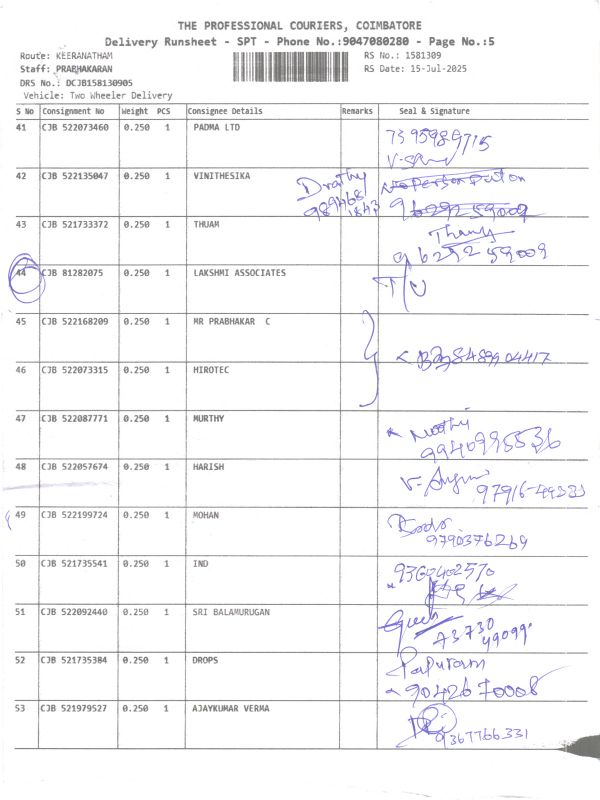 THE PROFESSIONAL COURIERS, COIMBATORE
Delivery Runsheet - SPT - Phone No.:9047080280 - Page No.:5
Route: KEERANATHAM RS No.: 1581309
Staff: PRABHAKARAN RS Date: 15-Jul-2025
DRS No.: DCJB158130905
Vehicle: Two Wheeler Delivery
S No Consignment No Weight PCS Consignee Details Remarks Seal & Signature
41 CJB 522073460 0.250 1 PADMA LTD
7395989715
42 CJB 522135047 0.250 1 VINITHESIKA
9629259009
43 CJB 521733372 0.250 1 THUAM
9629259009
44 CJB 81282075 0.250 1 LAKSHMI ASSOCIATES
45 CJB 522168209 0.250 1 MR PRABHAKAR C
8489904417
46 CJB 522073315 0.250 1 HIROTEC
47 CJB 522087771 0.250 1 MURTHY
9940995536
48 CJB 522057674 0.250 1 HARISH
49 CJB 522199724 0.250 1 MOHAN
9790376269
50 CJB 521735541 0.250 1 IND
9360402570
51 CJB 522092440 0.250 1 SRI BALAMURUGAN
73730
49099
52 CJB 521735384 0.250 1 DROPS
9042670008
53 CJB 521979527 0.250 1 AJAYKUMAR VERMA
9367766331